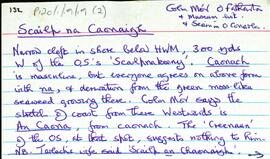 132
P120/1/9/9 (2)
Colm Mór Ó
& Máirtín
& Seán Ó Conaola
Scailp na Caonaigh
Narrow cleft in shore below HWM, 300 yds
W of the OS's 'Scalpnabeeny'. Caonach
is masculine, but everyone agrees on above form
with na, & derivation from the green moss-like
seaweed growing there. Colm Mór says the
stretch of coast from there westwards is
An Caona, from caonach. The 'Creenaun'
of the OS, at that spot, suggests nothing to him.
NB. wife said Scailp an Chaonaigh.